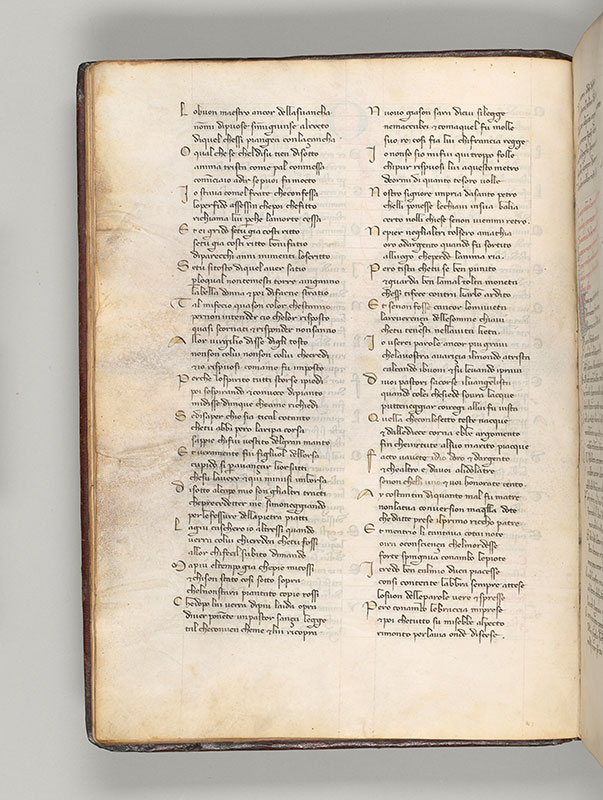 L obuon maestro ancor dellasuancha
nōmi dipuose simigiunse alrocto
diquel chessi piangea conlacinncha
O qual chese cheldisu tien disotto
anima trista come pal commessa
comīciaio adir sepuoi fa motto
I o stava comel frate checonfessa
loperfido assessin chepoi chefitto
richiama lui pche lamorte cessa
E t ei grido setu gia costi ritto
setu gia costi ritto bonifatio
diparecchi anni mimenti loscritto
S etu sitosto diquel aver satio
ploqual nontemesti torre anganno
labella donna et poi difarne stratio
T al mifecio quason color chestanno
pernon intender cio chelor risposto
quasi scornati et risponder nonsanno
A llor virgilio disse digli tosto
nonson colui nonson colui checredi
et io rispuosi comame fu imposto
P erche lospirito tutti storse ipiedi
poi sospirando et convoce dipianto
midisse dunque cheame richiedi
S edisaper chio sia tical cotanto
chetu abbi pero laripa corsa
sappie chifui vestito delgran manto
E t veramente fui figliuol dellorsa
cupido si pavancar liorsatti
chesu lavere et qui mimisi imborsa
D isotto alcapo mio son glialtri tracti
cheprecedetter me simoneggiando
perlefessure dellapietra piatti
L agiu caschero io altressi quando
verra colui chiocreden chetu fossi
allor chifecil subito dimando
M apiu eltempo gia chepie micossi
et chison stato cosi sotto sopra
chelnonstara piantato copie rossi
C hedopo lui verra dipiu laida opra
diver ponēte unpastor sanza legge
tal checonvien cheme et lui ricopra
N uovo giason sara dicui silegge
nemaccabei et comaquel fu molle
suo re cosi fia lui chifrancia regge
I o nonso sio mifui qui troppo folle
chipur rispuosi lui aquesto metro
deormi di quanto tesoro volle
N ostro signore imprīa dasanto petro
chelli ponesse lechiavi insua balia
certo nolli chiese senon viemmi retro
N epier neglialtri tolsero amathia
oro odargento quando fu sortito
alluogo cheperde lanima ria
P ero tista chetu se ben punito
et guarda ben lamal tolta moneta
chessi tifece contra karlo ardito
E t senon fosse cancor lomivieta
lareverenza dellesomme chiavi
chetu tenesti nellavita lieta
I o userei parole ancor piu gravi
chelavostra avaritia almondo atrista
calcando ibuoni et su levando ipravi
D iuoi pastori sacorse ilvangelista
quando colei chesiede soura lacque
puttaneggiar coregi allui fu vista
Q uella checonlesette teste nacque
et dalledieci corna ebbe argomento
fin chevirtute alsuo marito piacque
F acto vavete idio doro et dargento
et chealtro e davoi alidolatre
senon chelli uno et voi honorate cento
A y costantin diquanto mal fu matre
nonlatua conversion maqlla dote
chedatte prese ilprimo riccho patre
E t mentrio li cantava cotai note
oira oconscienza chelmordesse
forte springava conambo lepiote
I credo ben calmio duca piacesse
consi contente labbra sempre attese
losuon delleparole vere et spresse
P ero conambo lebraccia miprese
et poi chetutto su misebbe alpecto
rimonto perlavia onde discese